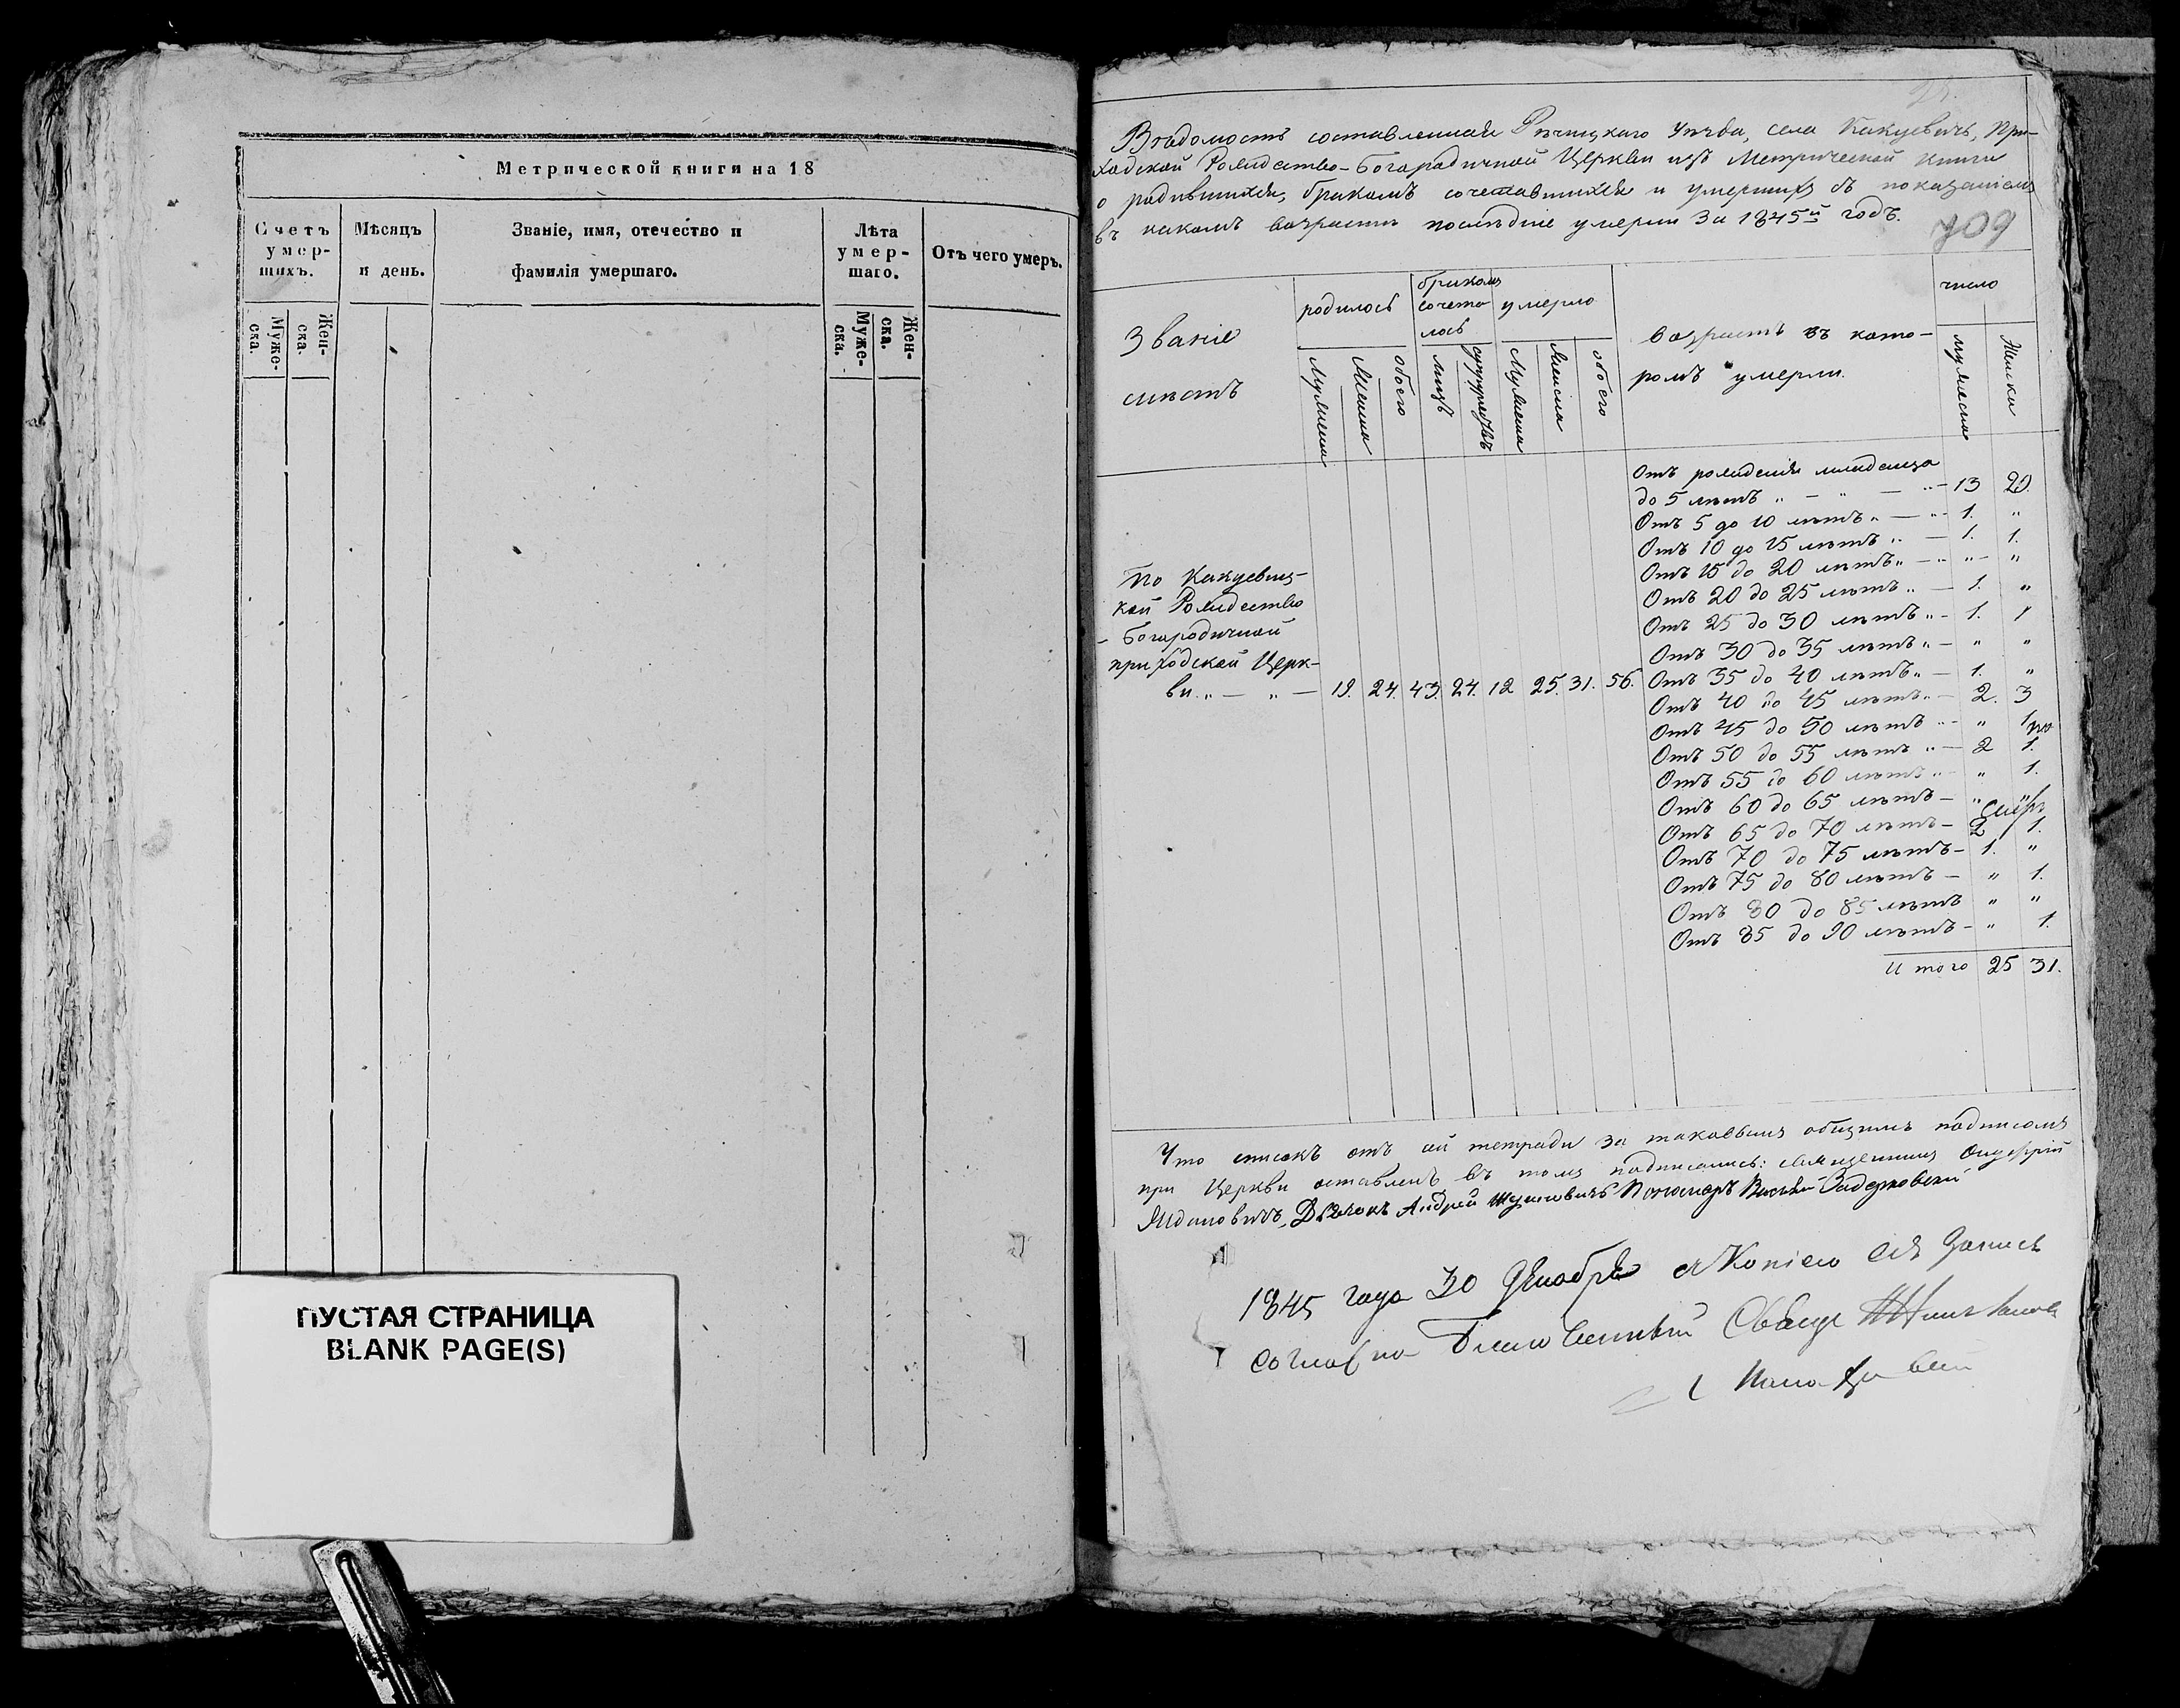 Метрической книги на 18
Счетъ умер-шихъ.
Мѣсяцъ и день.
Званіе, имя, отечество и фамилія умершаго.
Лѣта умер-шаго.
Отъ чего умеръ.
Муже-ска.
Жен-ска.
Муже-ска.
Жен-ска.
ПУСТАЯ СТРАНИЦА
BLANK PAGE(S)
Вѣдомость составленная Рѣчицкаго Уѣзда, села Какуевичь, При-
ходской Рождество-Богородичной Церкви изъ Метрической книги
о родившихся, бракомъ сочетавшихся и умершихъ съ показаніемъ
въ какомъ возрастѣ послѣдніе умерли за 1845й годъ.
709
Званіе мѣстъ
родилось
бракомъ сочета лось
умерло
возрастъ въ кото-ромъ умерли.
число
Мужеска
Женска
обоего
лицъ
супружествъ
Мужеска
Женска
обоего
мужеска
Женска
Отъ рожденія младенца
до 5 лѣтъ „ — „ — „ — 13 20.
Отъ 5 до 10 лѣтъ „ — „ 1. „
Отъ 10 до 15 лѣтъ „ — 1. 1.
Отъ 15 до 20 лѣтъ „ — „ „ — „
Отъ 20 до 25 лѣтъ „ — 1. „
Отъ 25 до 30 лѣтъ „ — 1. 1
Отъ 30 до 35 лѣтъ „ — „ „
По Какуевиц-
кой Рождество
-Богородичной
приходской Церк-
ви „ — „ — 19. 24. 43. 24. 12 25. 31. 56. Отъ 35 до 40 лѣтъ „ — 1. „
Отъ 40 до 45 лѣтъ „ — 2. 3
Отъ 45 до 50 лѣтъ „ — „ 1
Отъ 50 до 55 лѣтъ „ — 2 1.
Отъ 55 до 60 лѣтъ „ — „ 1.
Отъ 60 до 65 лѣтъ — „ „
Отъ 65 до 70 лѣтъ — 2 1.
Отъ 70 до 75 лѣтъ — 1. „
Отъ 75 до 80 лѣтъ — „ 1.
Отъ 80 до 85 лѣтъ „ „
Отъ 85 до 90 лѣтъ — „ 1.
Итого 25 31.
Что списокъ отъ сей тетради за таковымъ общимъ подписомъ
при Церкви оставленъ въ томъ подписались: священникъ
Ждановичъ, Дьячокъ Андрей Пономарь Василій
1845 года 30 Декабря съ Копіею сія запись
согласна Благочинный